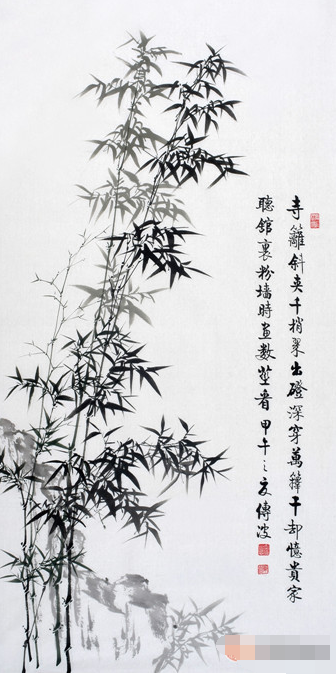 寺籬斜夹千梢翠出磴深穿萬籜干却憶貴家
聽館裏粉墙時畫數莖看甲午之夏傳波